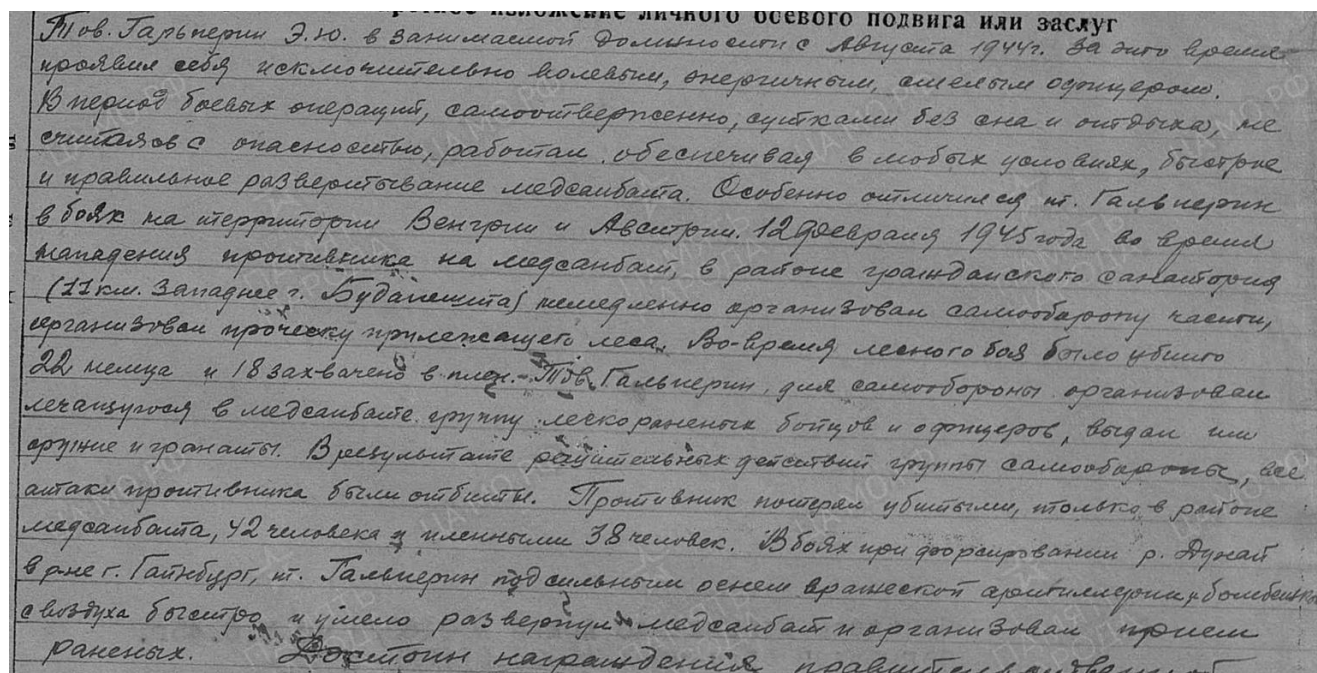 изложение личного боевого подвига или заслуг
Тов. Гальперин Э.Ю. в занимаемой должности с Августа 1944г. За это время
проявил себя исключительно волевым, энергичным, смелым офицером.
В период боевых операций, самоотверженно, сутками без сна и отдыха, не
считаясь с опасностью, работал, обеспечивая в любых условиях, быстрое
и правильное развертывание медсанбата. Особенно отличился т. Гальперин
в боях на территории Венгрии и Австрии. 12 февраля 1945 года во время
нападения противника на медсанбат, в районе гражданского санатория
(11 км. Западнее г. Будапешта) немедленно организовал самооборону части,
организовал проческу прилежащего леса. Во-время лесного боя было убито
22 немца и 18 захвачено в плен. - Тов. Гальперин, для самообороны организовал
лечащуюся в медсанбате группу легкораненых бойцов и офицеров, выдал им
оружие и гранаты. В результате решительных действий группы самообороны, все
атаки противника были отбиты. Противник потерял убитыми, только в районе
медсанбата, 42 человека и пленными 38 человек. В боях при форсировании р. Дунай
в р-не г. Гайнбург, т. Гальперин под сильным огнем вражеской артиллерии и бомбежкой
с воздуха быстро и умело развернул медсанбат и организовал прием
раненых. Достоин награждения правительственной